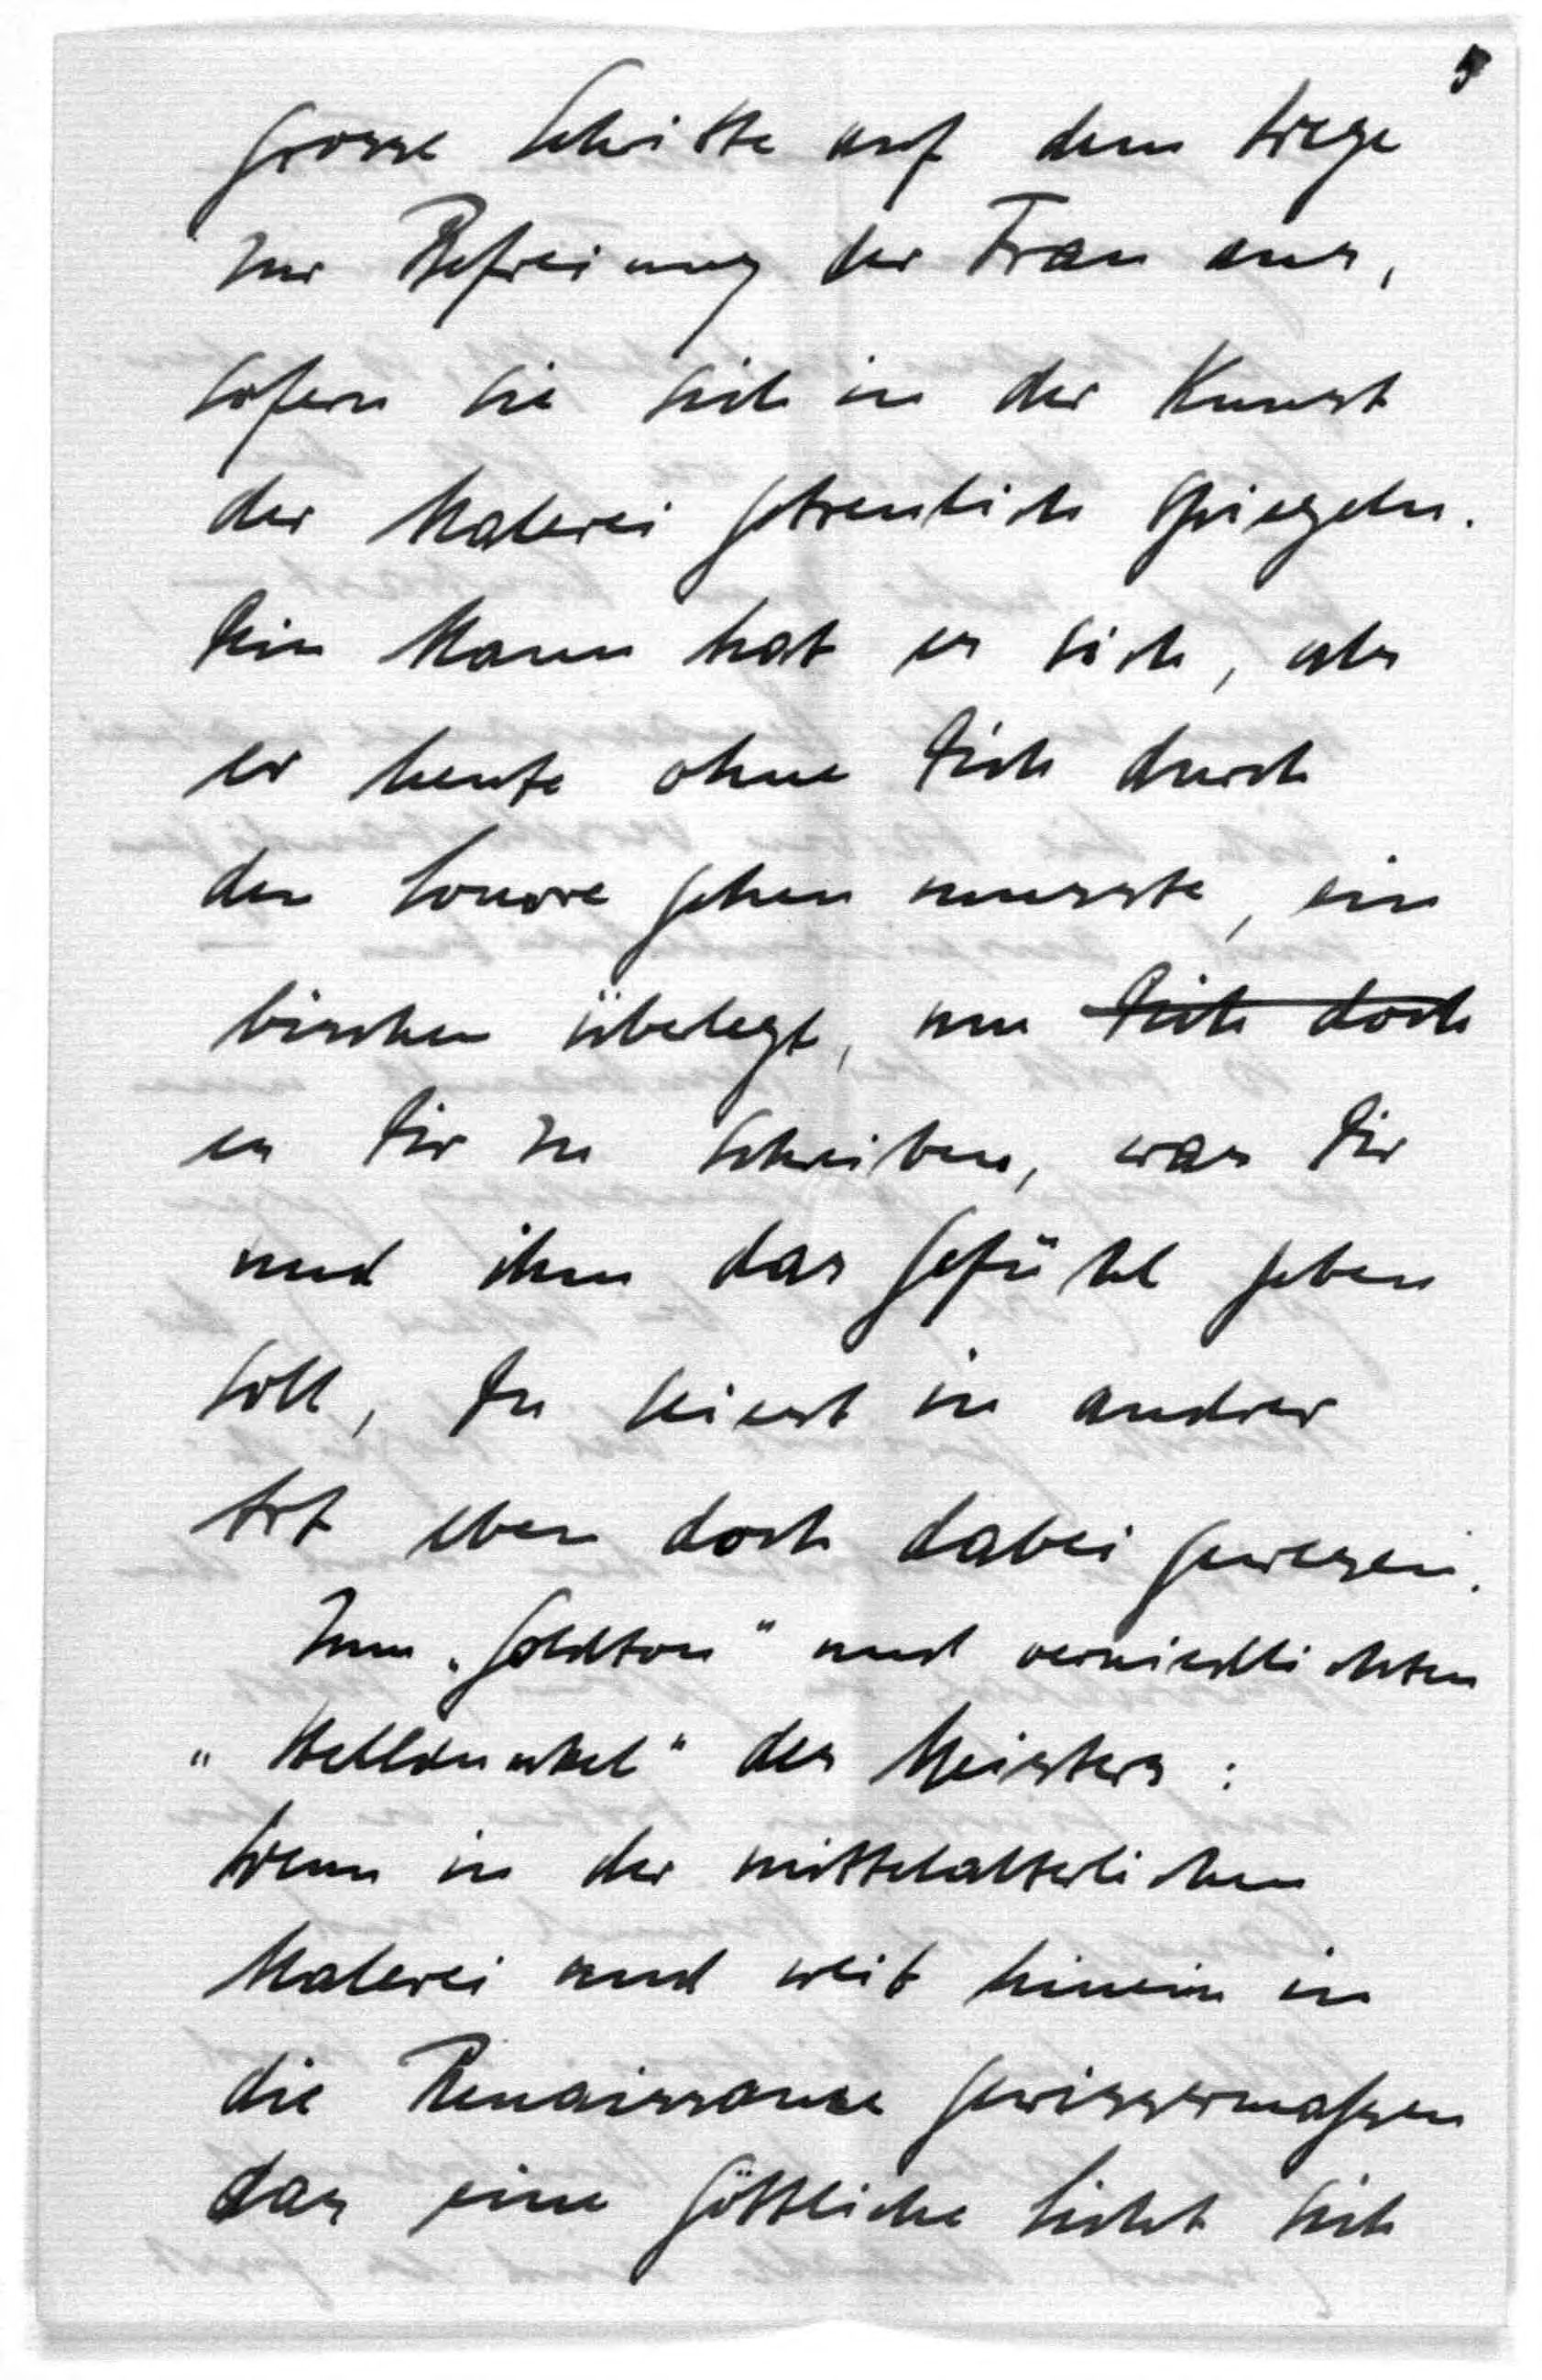 grosse Schritte auf dem Wege
zur Befreiung der Frau aus,
sofern sie sich in der Kunst
der Malerei getreulich spiegeln.
Dein Mann hat es sich, als
er heute ohne Dich durch
den Louvre gehen musste, ein
bisschen überlegt, um Dich doch
es Dir zu schreiben, was Dir
und ihm das Gefühl geben
soll, Du seiest in andrer
Art eben doch dabei gewesen.
Zum „Goldton" und verniedlichten
„Helldunkel" des Meisters:
Wenn in der mittelalterlichen
Malerei und weit hinein in
die Renaissance gewissermassen
das eine göttliche Licht sich